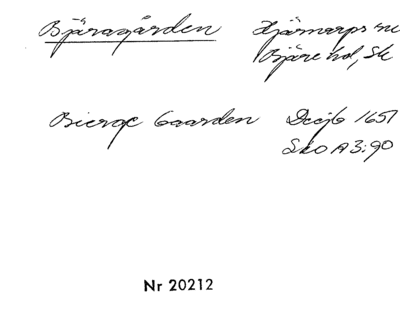 Bjäragården Hjärnarps sn
Bjäre hd, Sk
Bierge Gaarden Decjb 1651
Sko A3:90
Nr 20212